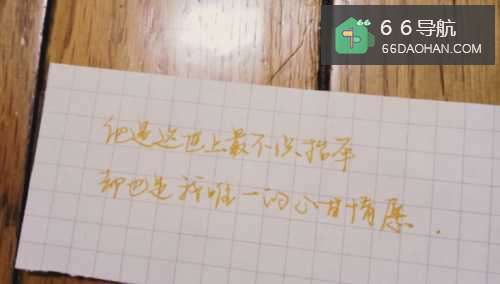 66导航
66DAOHAN.COM
他是这世上最不
却也是我唯一的心甘情愿.